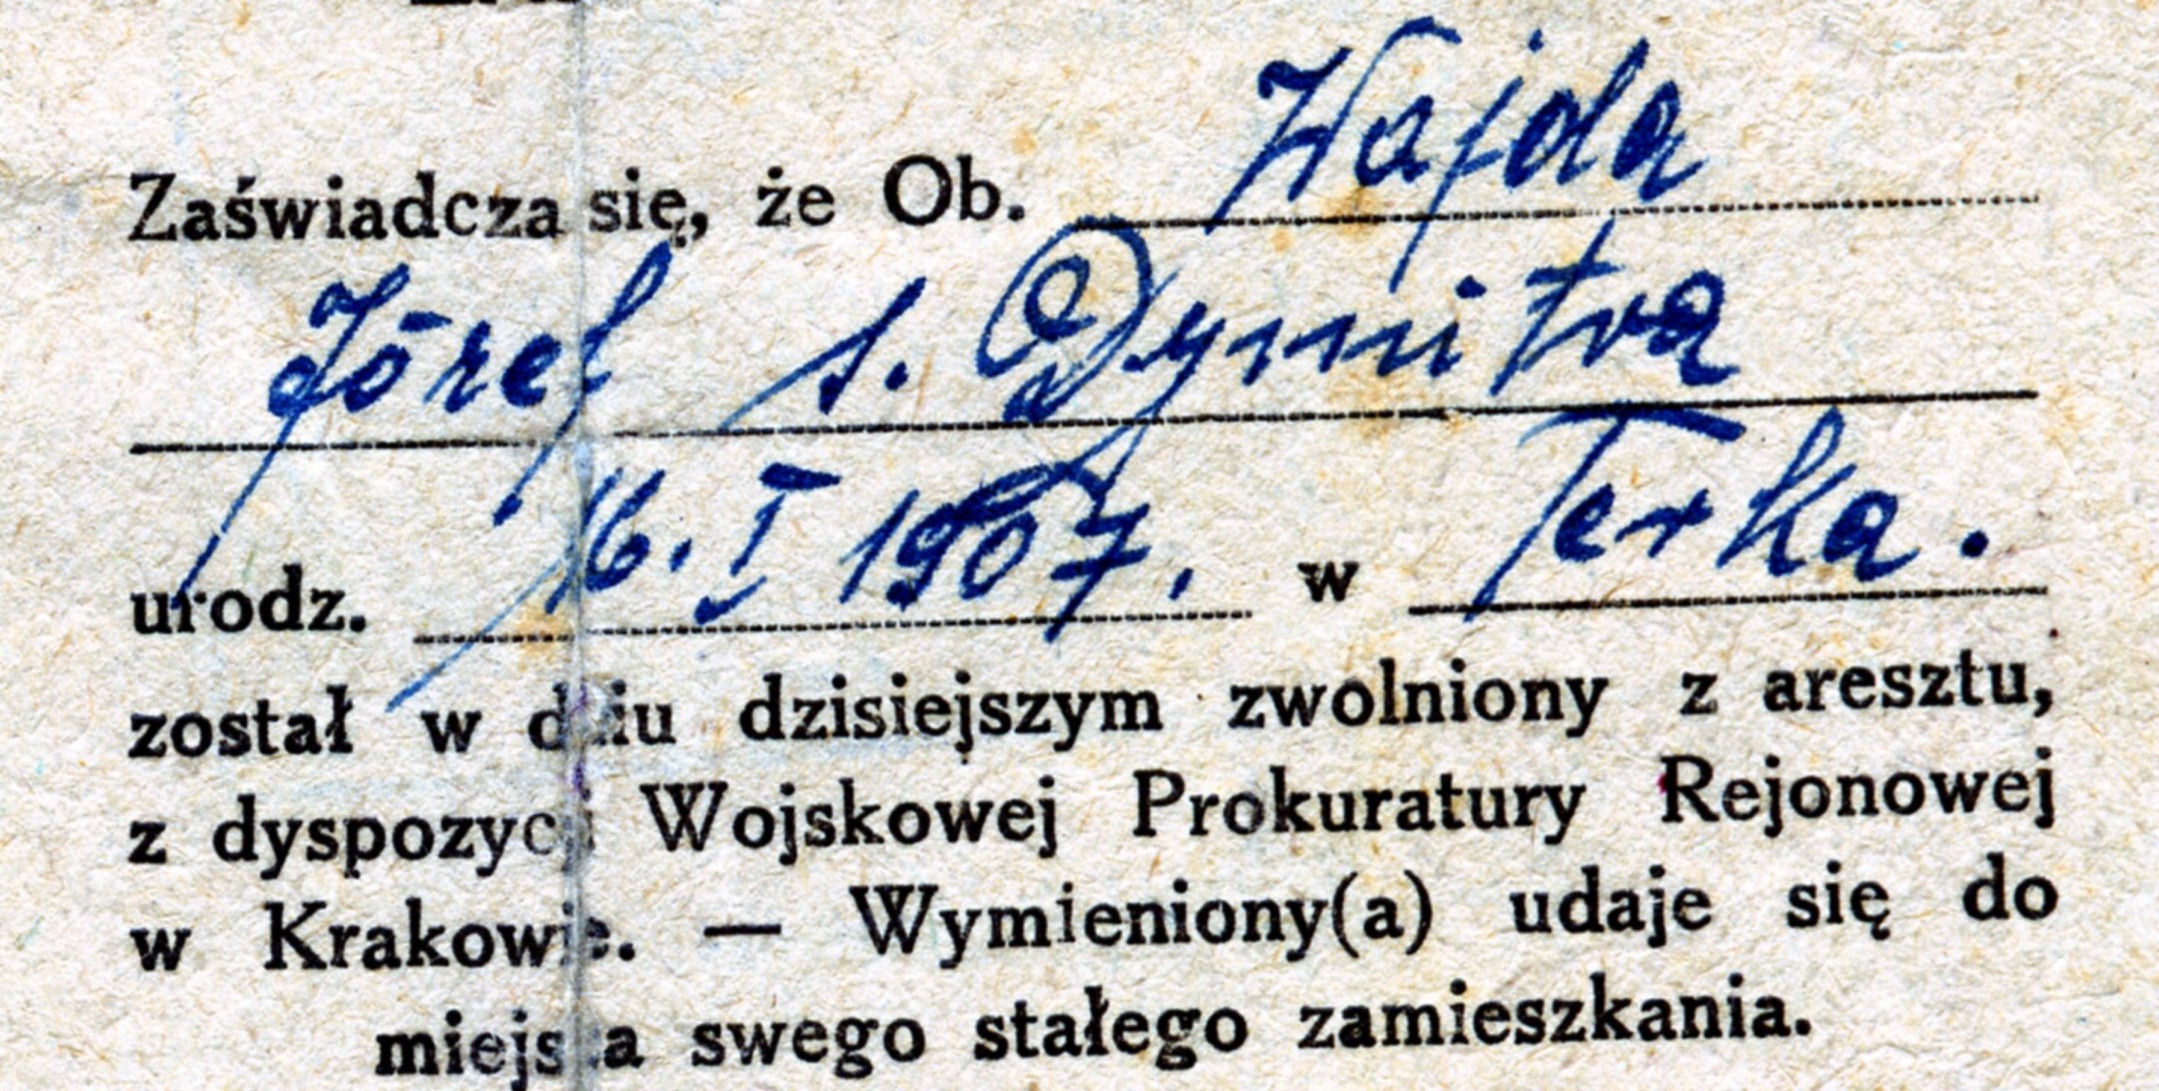 Zaświadcza się, że Ob. Wajda
Józef s. Dymitra
urodz. 16. I 1907. w Terka.
został w dniu dzisiejszym zwolniony z aresztu,
z dyspozycji Wojskowej Prokuratury Rejonowej
w Krakowie. — Wymieniony(a) udaje się do
miejsca swego stałego zamieszkania.